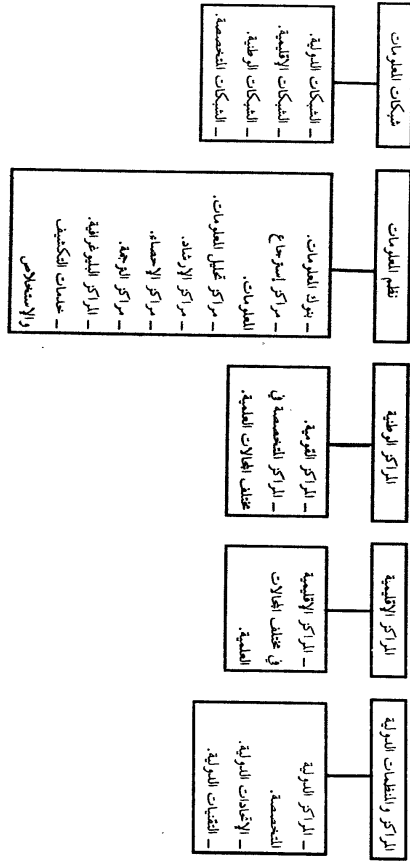 شبكات المعلومات
– الشبكات الدولية.
– الشبكات الإقليمية.
– الشبكات الوطنية.
– الشبكات المتخصصة.
نظم المعلومات
– بنوك المعلومات.
– مراكز إسترجاع
المعلومات.
– مراكز تحليل المعلومات.
– مراكز الإرشاد.
– مراكز الإحصاء.
– مراكز الترجمة.
– المراكز البيليوغرافية.
– خدمات التكشيف
والإستخلاص
المراكز الوطنية
– المراكز القومية.
– المراكز المتخصصة في
مختلف المجالات العلمية.
المراكز الإقليمية
– المراكز الإقليمية
في مختلف المجالات
العلمية.
المراكز والمنظمات الدولية
– المراكز الدولية
المتخصصة.
– الإتحادات الدولية.
– التقنيات الدولية.